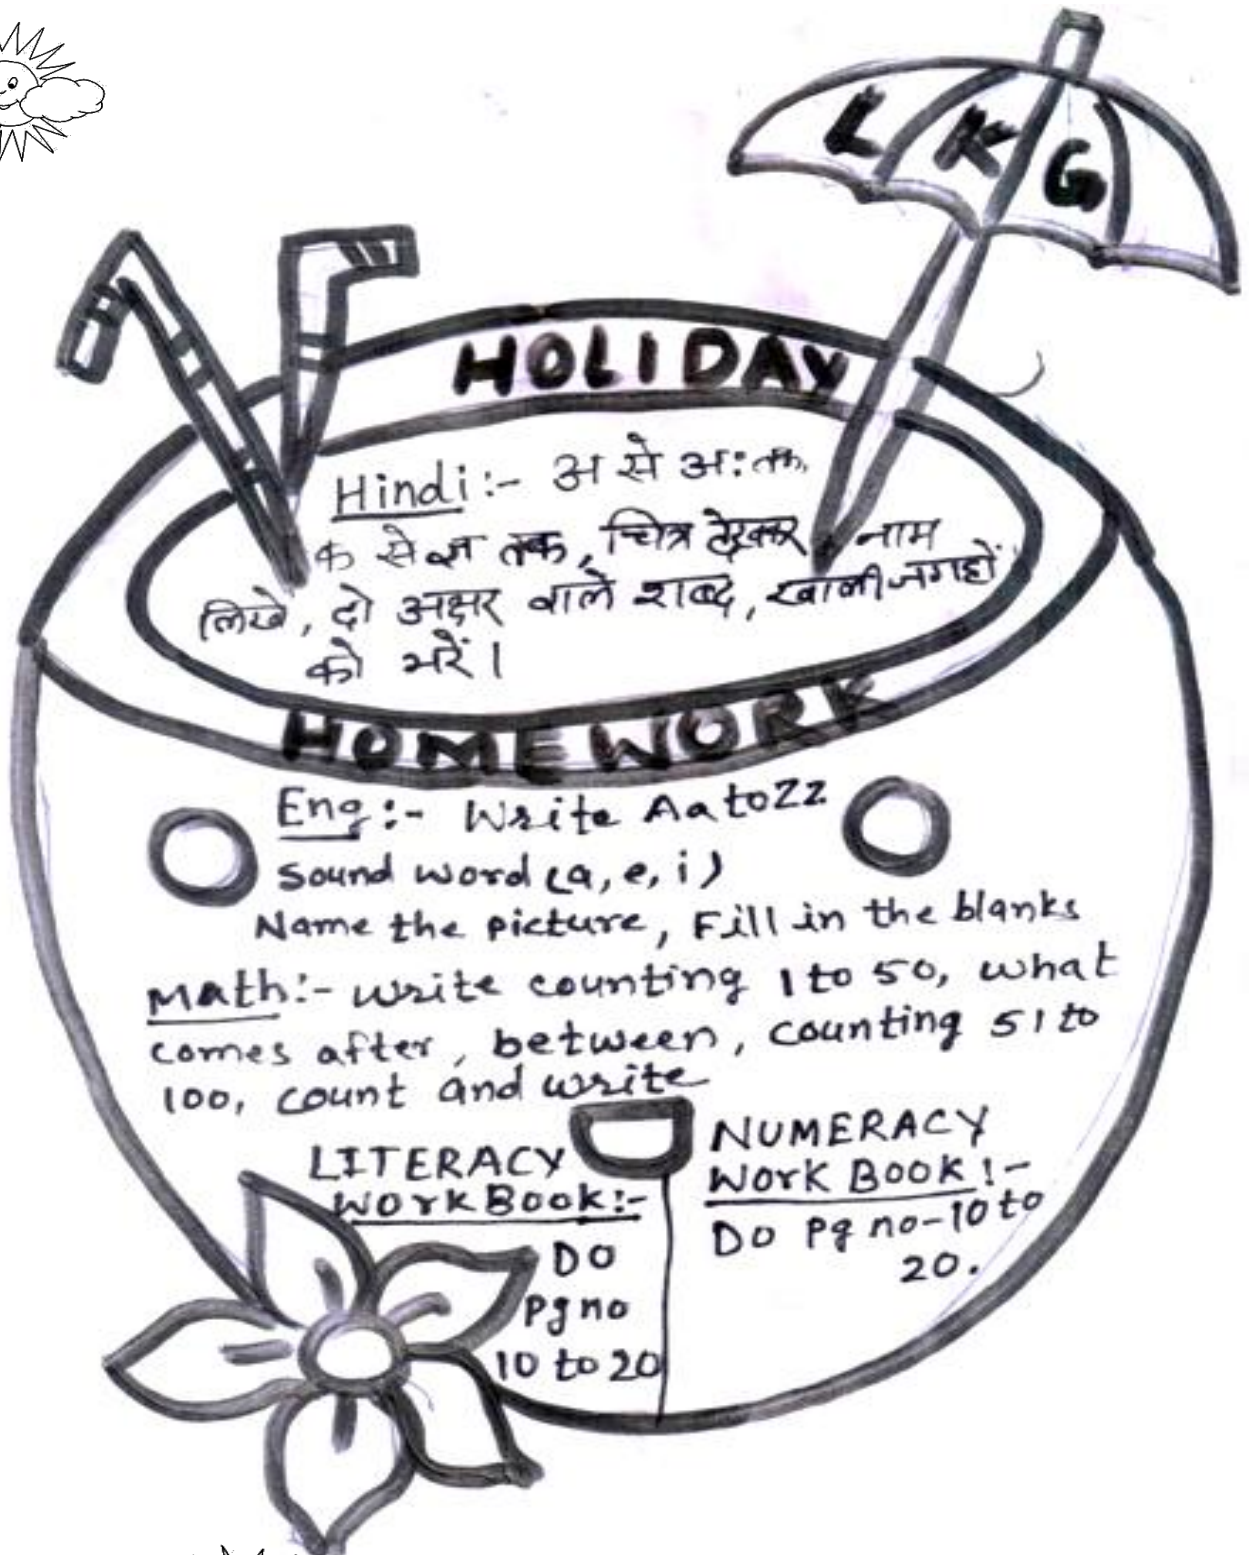 LKG
HOLIDAY
Hindi:- अ से अः तक,
क से ज्ञ तक, चित्र देखकर नाम
लिखे, दो अक्षर वाले शब्द, खाली जगहों
को भरें।
HOMEWORK
Eng:- Write Aa to Zz
Sound word (a, e, i)
Name the picture, Fill in the blanks
Math:- Write counting 1 to 50, what
comes after, between, counting 51 to
100, count and write
LITERACY
Work Book:-
Do
Pg no
10 to 20
NUMERACY
Work Book:-
Do Pg no-10 to
20.